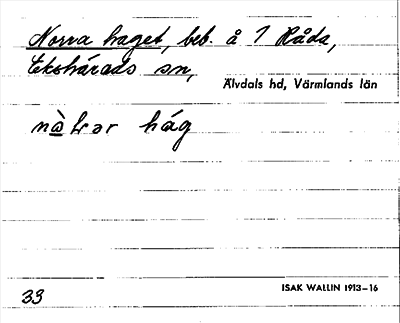 Norra haget, beb. å 1 Råda,
Ekshärads sn,
Älvdals hd, Värmlands län
hág
33
ISAK WALLIN 1913–16